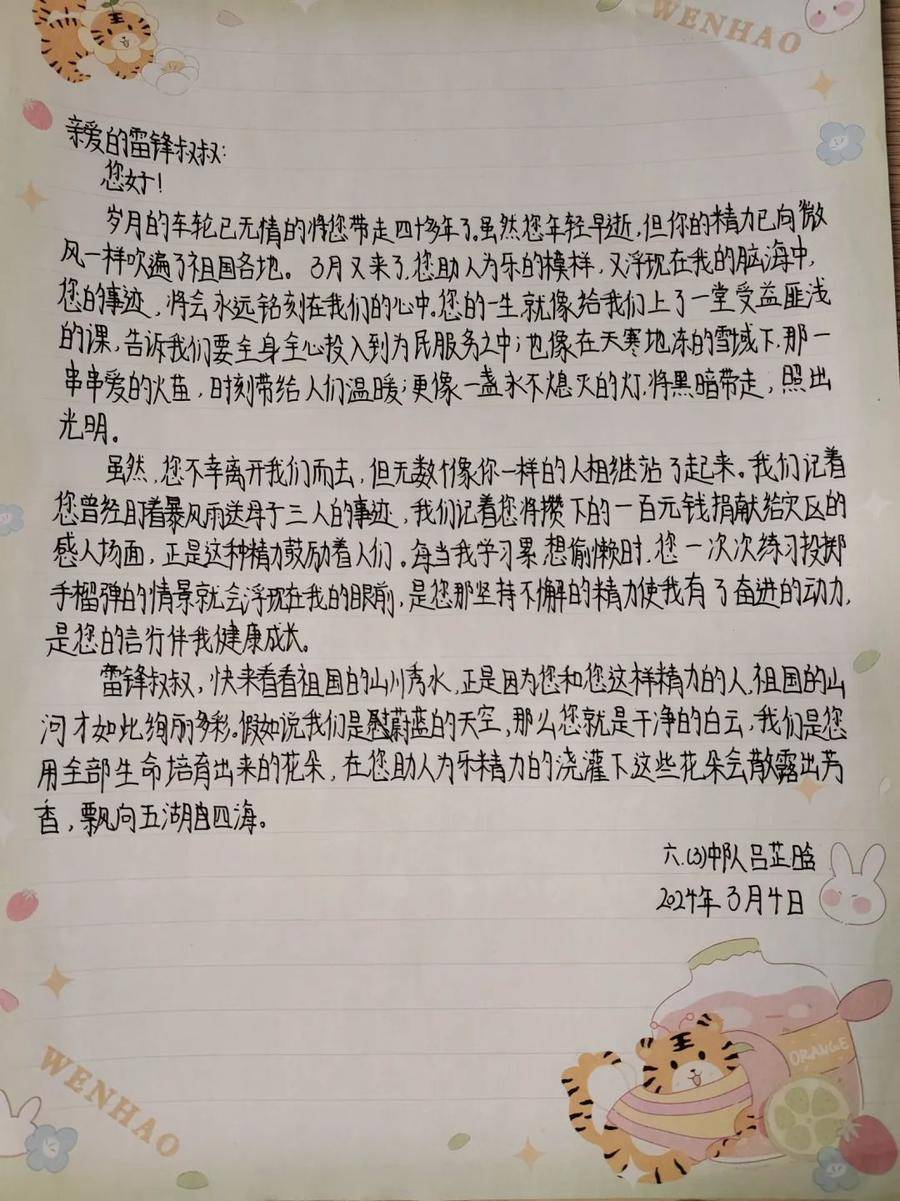 WENHAO
亲爱的雷锋叔叔:
您好!
岁月的车轮已无情的将您带走四十多年了。虽然您年轻早逝,但你的精力已向微
风一样吹遍了祖国各地。3月又来了,您助人为乐的模样,又浮现在我的脑海中,
您的事迹,将会永远铭刻在我们的心中。您的一生就像给我们上了一堂受益匪浅
的课,告诉我们要全身全心投入到为民服务之中;也像在天寒地冻的雪域下,那一
串串爱的火苗,时刻带给人们温暖;更像一盏永不熄灭的灯,将黑暗带走,照出
光明。
虽然,您不幸离开我们而去,但无数个像你一样的人相继站了起来。我们记着
您曾经盯着暴风雨送母子三人的事迹,我们记着您将攒下的一百元钱捐献给灾区的
感人场面,正是这种精力鼓励着人们。每当我学习累,想偷懒时,您一次次练习投掷
手榴弹的情景就会浮现在我的眼前,是您那坚持不懈的精力使我有了奋进的动力,
是您的言行伴我健康成长。
雷锋叔叔,快来看看祖国的山川秀水,正是因为您和您这样精力的人,祖国的山
河才如此绚丽多彩。假如说我们是蔚蓝的天空,那么您就是干净的白云,我们是您
用全部生命培育出来的花朵,在您助人为乐精力的浇灌下这些花朵会散露出芳
香,飘向五湖四海。
六.(3)中队吕芷晗
2024年3月4日
ORANGE
WENHAO